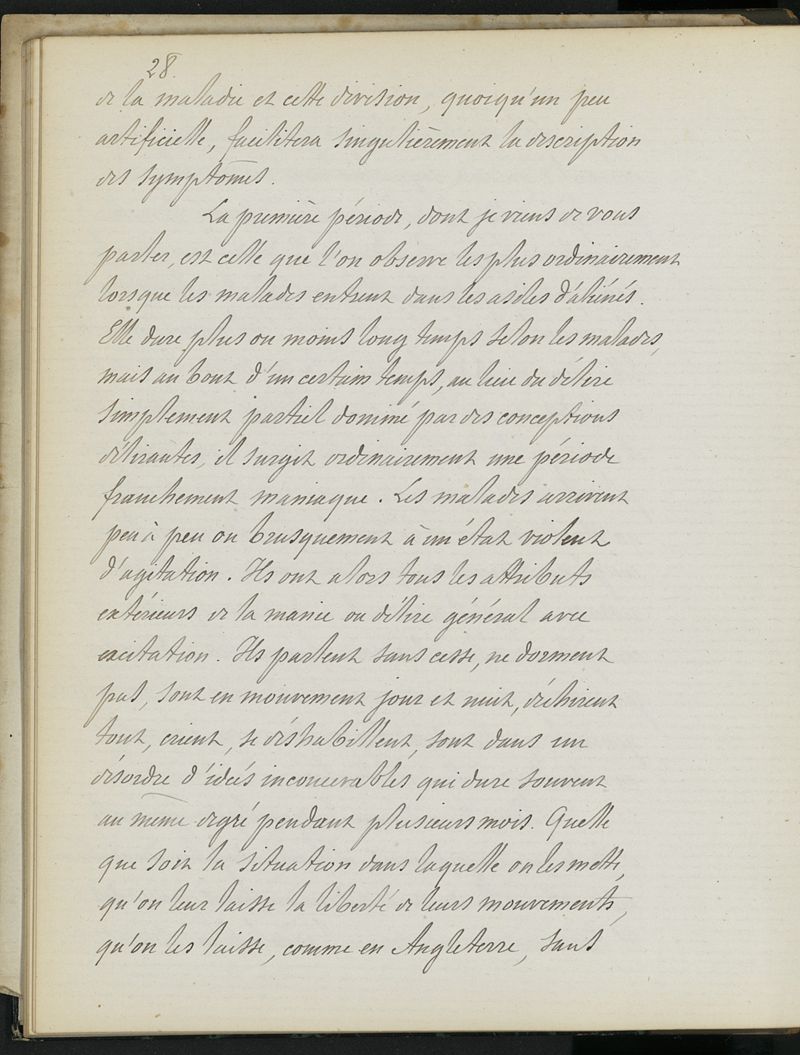 28.
de la maladie et cette division, quoiqu'un peu
artificielle, facilitera singulièrement la description
des symptômes.
La première période, dont je viens de vous
parler, est celle que l'on observe les plus ordinairement
lorsque les malades entrent dans les asiles d'aliénés.
Elle dure plus ou moins long temps selon les malades,
mais au bout d'un certain temps, au lieu du délire
simplement partiel dominé par des conceptions
délirantes, il surgit ordinairement une période
franchement maniaque. Les malades arrivent
peu à peu ou brusquement à un état violent
d'agitation. Ils ont alors tous les attributs
extérieurs de la manie ou délire général avec
excitation. Ils parlent sans cesse, ne dorment
pas, sont en mouvement jour et nuit, déchirent
tout, crient, se déshabillent, sont dans un
désordre d'idées inconcevables qui dure souvent
au même degré pendant plusieurs mois. Quelle
que soit la situation dans laquelle on les mette,
qu'on leur laisse la liberté de leurs mouvements,
qu'on les laisse, comme en Angleterre, sans